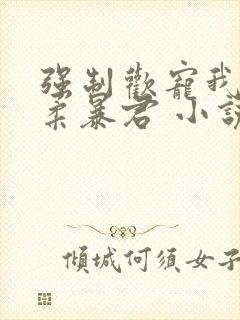 强制歡寵我
柔暴君 小說
傾城何須女子